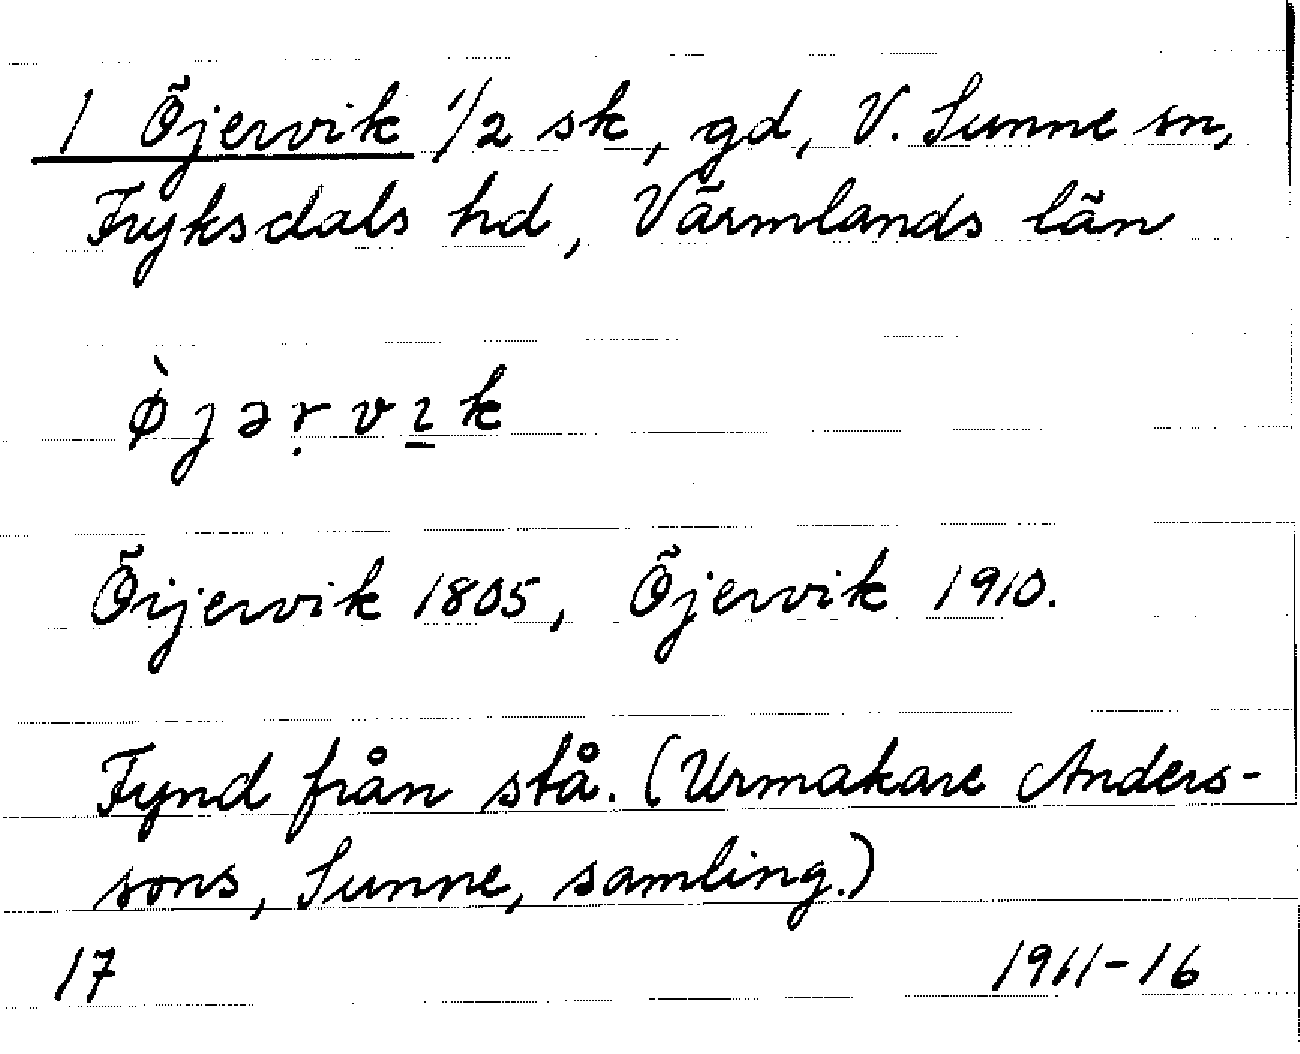 1 Öjervik 1/2 sk, gd, V. Sunne sn,
Fryksdals hd, Värmlands län
ø̀jəṛvı̲k
Öijervik 1805, Öjervik 1910.
Fynd från stå. (Urmakare Anders-
sons, Sunne, samling.)
17 1911-16